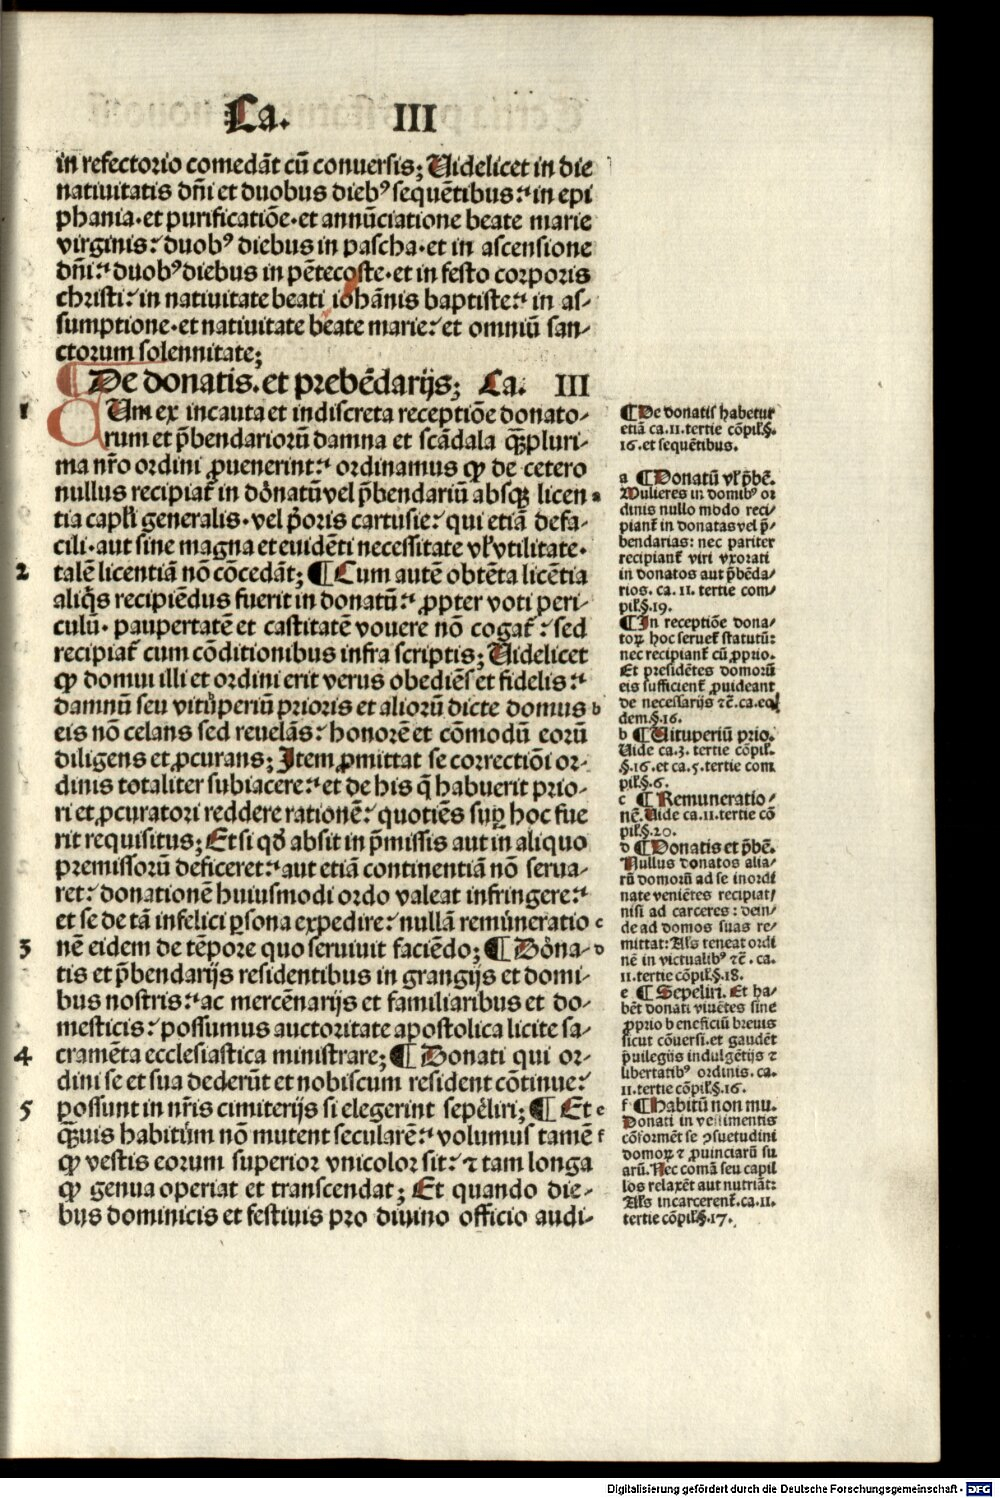 Ca. III
in refectorio comedāt cū conuersis; Videlicet in die
natiuitatis dn̄i et duobus dieb⁹ sequētibus: in epi
phania. et purificatiōe. et annūciatione beate marie
virginis: duob⁹ diebus in pascha. et in ascensione
dn̄i: duob⁹ diebus in pētecoste. et in festo corporis
christi: in natiuitate beati iohānis baptiste: in as-
sumptione. et natiuitate beate marie: et omniū san-
ctorum solennitate;
¶ De donatis. et prebēdarijs; Ca. III
1 CUm ex incauta et indiscreta receptiōe donato-
rum et p̄bendariorū damna et scādala q̄ꝫpluri-
ma nr̄o ordini ꝓuenerint: ordinamus ꝙ de cetero
nullus recipiat̄ in donatū vel p̄bendariū absqꝫ licen a
tia capl̄i generalis. vel p̄oris cartusie: qui etiā defa-
cili. aut sine magna et euidēti necessitate vl̓ vtilitate.
2 talē licentiā nō cōcedāt; ¶ Cum autē obtēta licētia
aliq̄s recipiēdus fuerit in donatū: ꝓpter voti peri-
culū. paupertatē et castitatē vouere nō cogat̄: sed
recipiat̄ cum cōditionibus infra scriptis; Videlicet
ꝙ domui illi et ordini erit verus obediēs et fidelis:
damnū seu vitupeiū prioris et aliorū dicte domus b
eis nō celans sed reuelās: honorē et cōmodū eorū
diligens et ꝓcurans; Item ꝓmittat se correctiōi or-
dinis totaliter subiacere: et de his q̄ habuerit prio-
ri et ꝓcuratori reddere rationē: quotiēs suꝑ hoc fue
rit requisitus; Et si qd̄ absit in p̄missis aut in aliquo
premissorū deficeret: aut etiā continentiā nō serua-
ret: donationē huiusmodi ordo valeat infringere:
et se de tā infelici ꝑsona expedire: nullā remuneratio c
3 nē eidem de tēpore quo seruiuit faciēdo; ¶ Dona- d
tis et p̄bendarijs residentibus in grangijs et domi-
bus nostris: ac mercēnarijs et familiaribus et do-
mesticis: possumus auctoritate apostolica licite sa-
4 cramēta ecclesiastica ministrare; ¶ Donati qui or-
dini se et sua dederūt et nobiscum resident cōtinue:
5 possunt in nr̄is cimiterijs si elegerint sepeliri; ¶ Et e
q̄ꝫuis habitum nō mutent secularē: volumus tamē f
ꝙ vestis eorum superior vnicolor sit: ⁊ tam longa
ꝙ genua operiat et transcendat; Et quando die-
bus dominicis et festiuis pro diuino officio audi-
¶ De donatis habetur
etiā ca. 11. tertie cōpil̓. §.
16. et sequētibus.
a ¶ Donatū vl̓ p̄bē.
Mulieres in domib⁹ or
dinis nullo modo reci-
piant̄ in donatas vel p̄-
bendarias: nec pariter
recipiant̄ viri vxorati
in donatos aut p̄bēda-
rios. ca. 11. tertie com-
pil̓. §. 19.
¶ In receptiōe dona-
toꝝ hoc seruet̄ statutū:
nec recipiant̄ cū ꝓprio.
Et presidētes domorū
eis sufficient̄ ꝓuideant
de necessarijs ⁊c̄. ca. eo
dem. §. 16.
b ¶ Vituperiū prio.
Vide ca. 3. tertie cōpil̓.
§. 16. et ca. 5. tertie com
pil̓. §. 6.
c ¶ Remuneratio-
nē. Vide ca. 11. tertie cō
pil̓. §. 20.
d ¶ Donatis et p̄bē.
Nullus donatos alia-
rū domorū ad se inordi
nate veniētes recipiat/
nisi ad carceres: dein-
de ad domos suas re-
mittat: Al̓s teneat ordi
nē in victualib⁹ ⁊c̄. ca.
11. tertie cōpil̓. §. 18.
e ¶ Sepeliri. Et ha-
bēt donati viuētes sine
ꝓprio beneficiū breuis
sicut cōuersi. et gaudēt
p̄uilegijs indulgētijs ⁊
libertatib⁹ ordinis. ca.
11. tertie cōpil̓. §. 16.
f ¶ Habitū non mu.
Donati in vestimentis
cōformēt se ꝯsuetudini
domoꝝ ⁊ ꝓuinciarū su
arū. Nec comā seu capil
los relaxēt aut nutriāt:
Al̓s incarcerent̄. ca. 11.
tertie cōpil̓. §. 17.
Digitalisierung gefördert durch die Deutsche Forschungsgemeinschaft - DFG